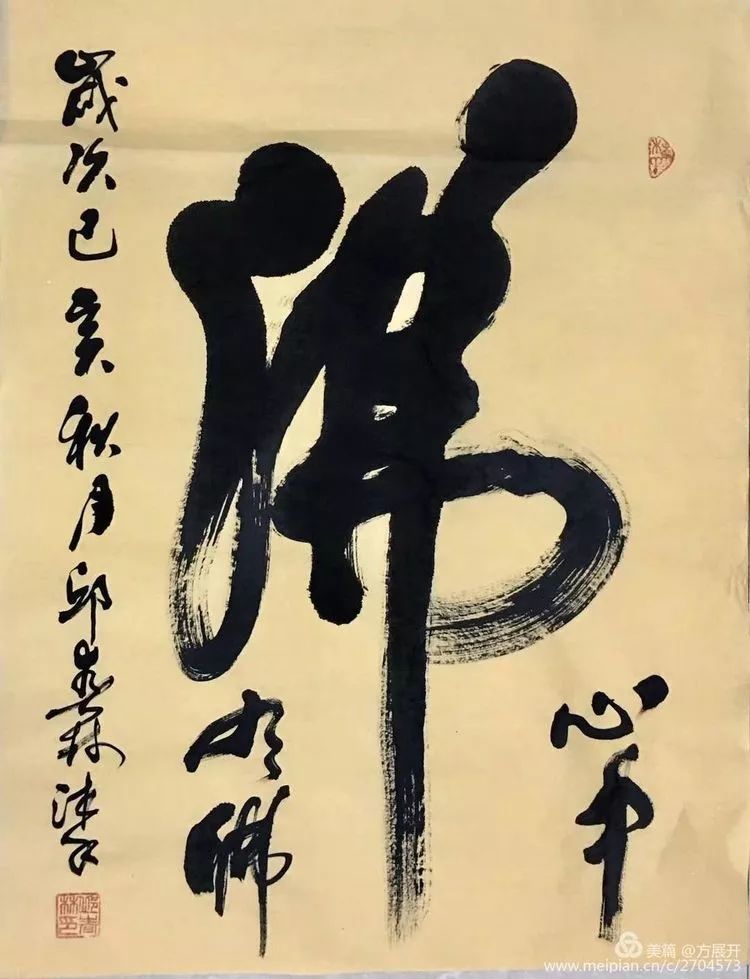 佛
心中
有佛
歲次己亥秋月邱林
美篇 @方展开
www.meipian.cn/c/2704573